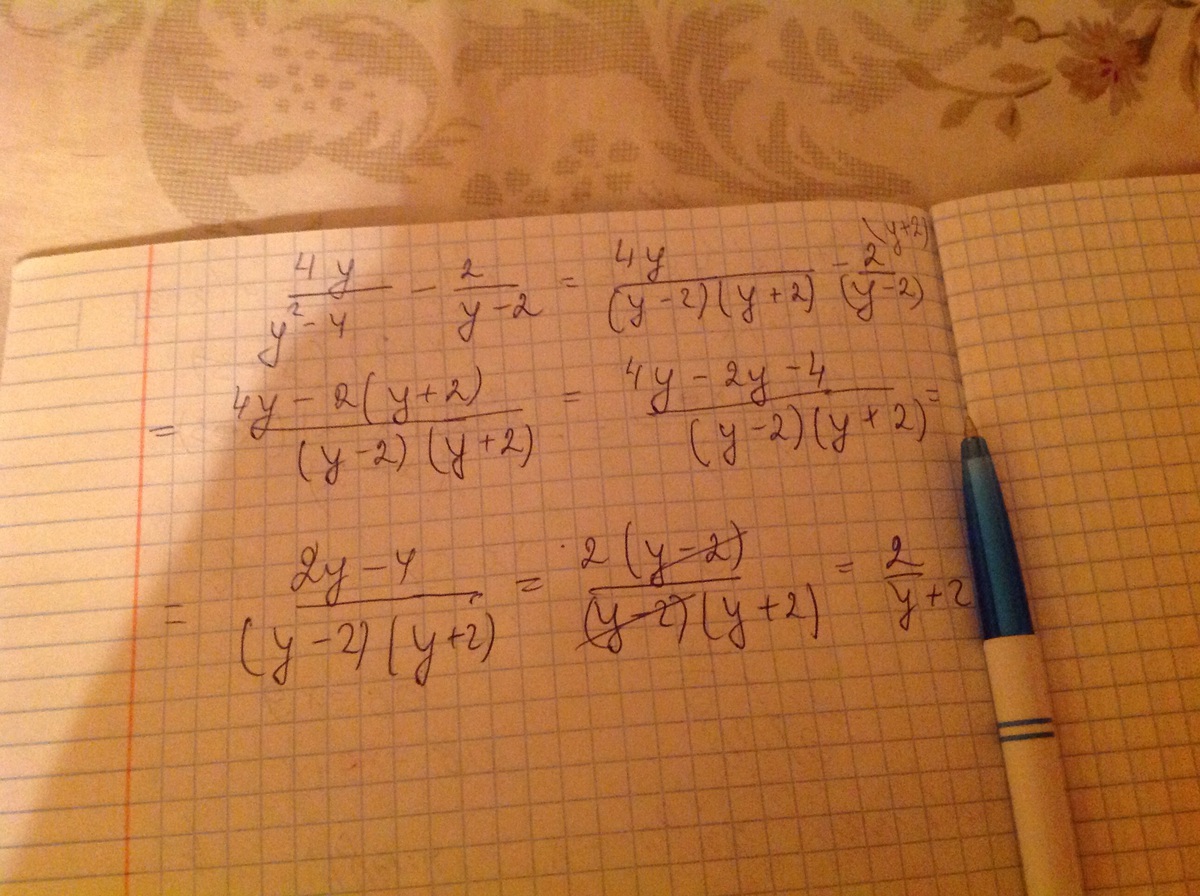 4y/(y² - 4) - 2/(y - 2) = 4y/((y - 2)(y + 2)) - 2^(y+2)/(y - 2)
= (4y - 2(y + 2))/((y - 2)(y + 2)) = (4y - 2y - 4)/((y - 2)(y + 2)) =
= (2y - 4)/((y - 2)(y + 2)) = 2(y - 2)/((y - 2)(y + 2)) = 2/(y + 2)